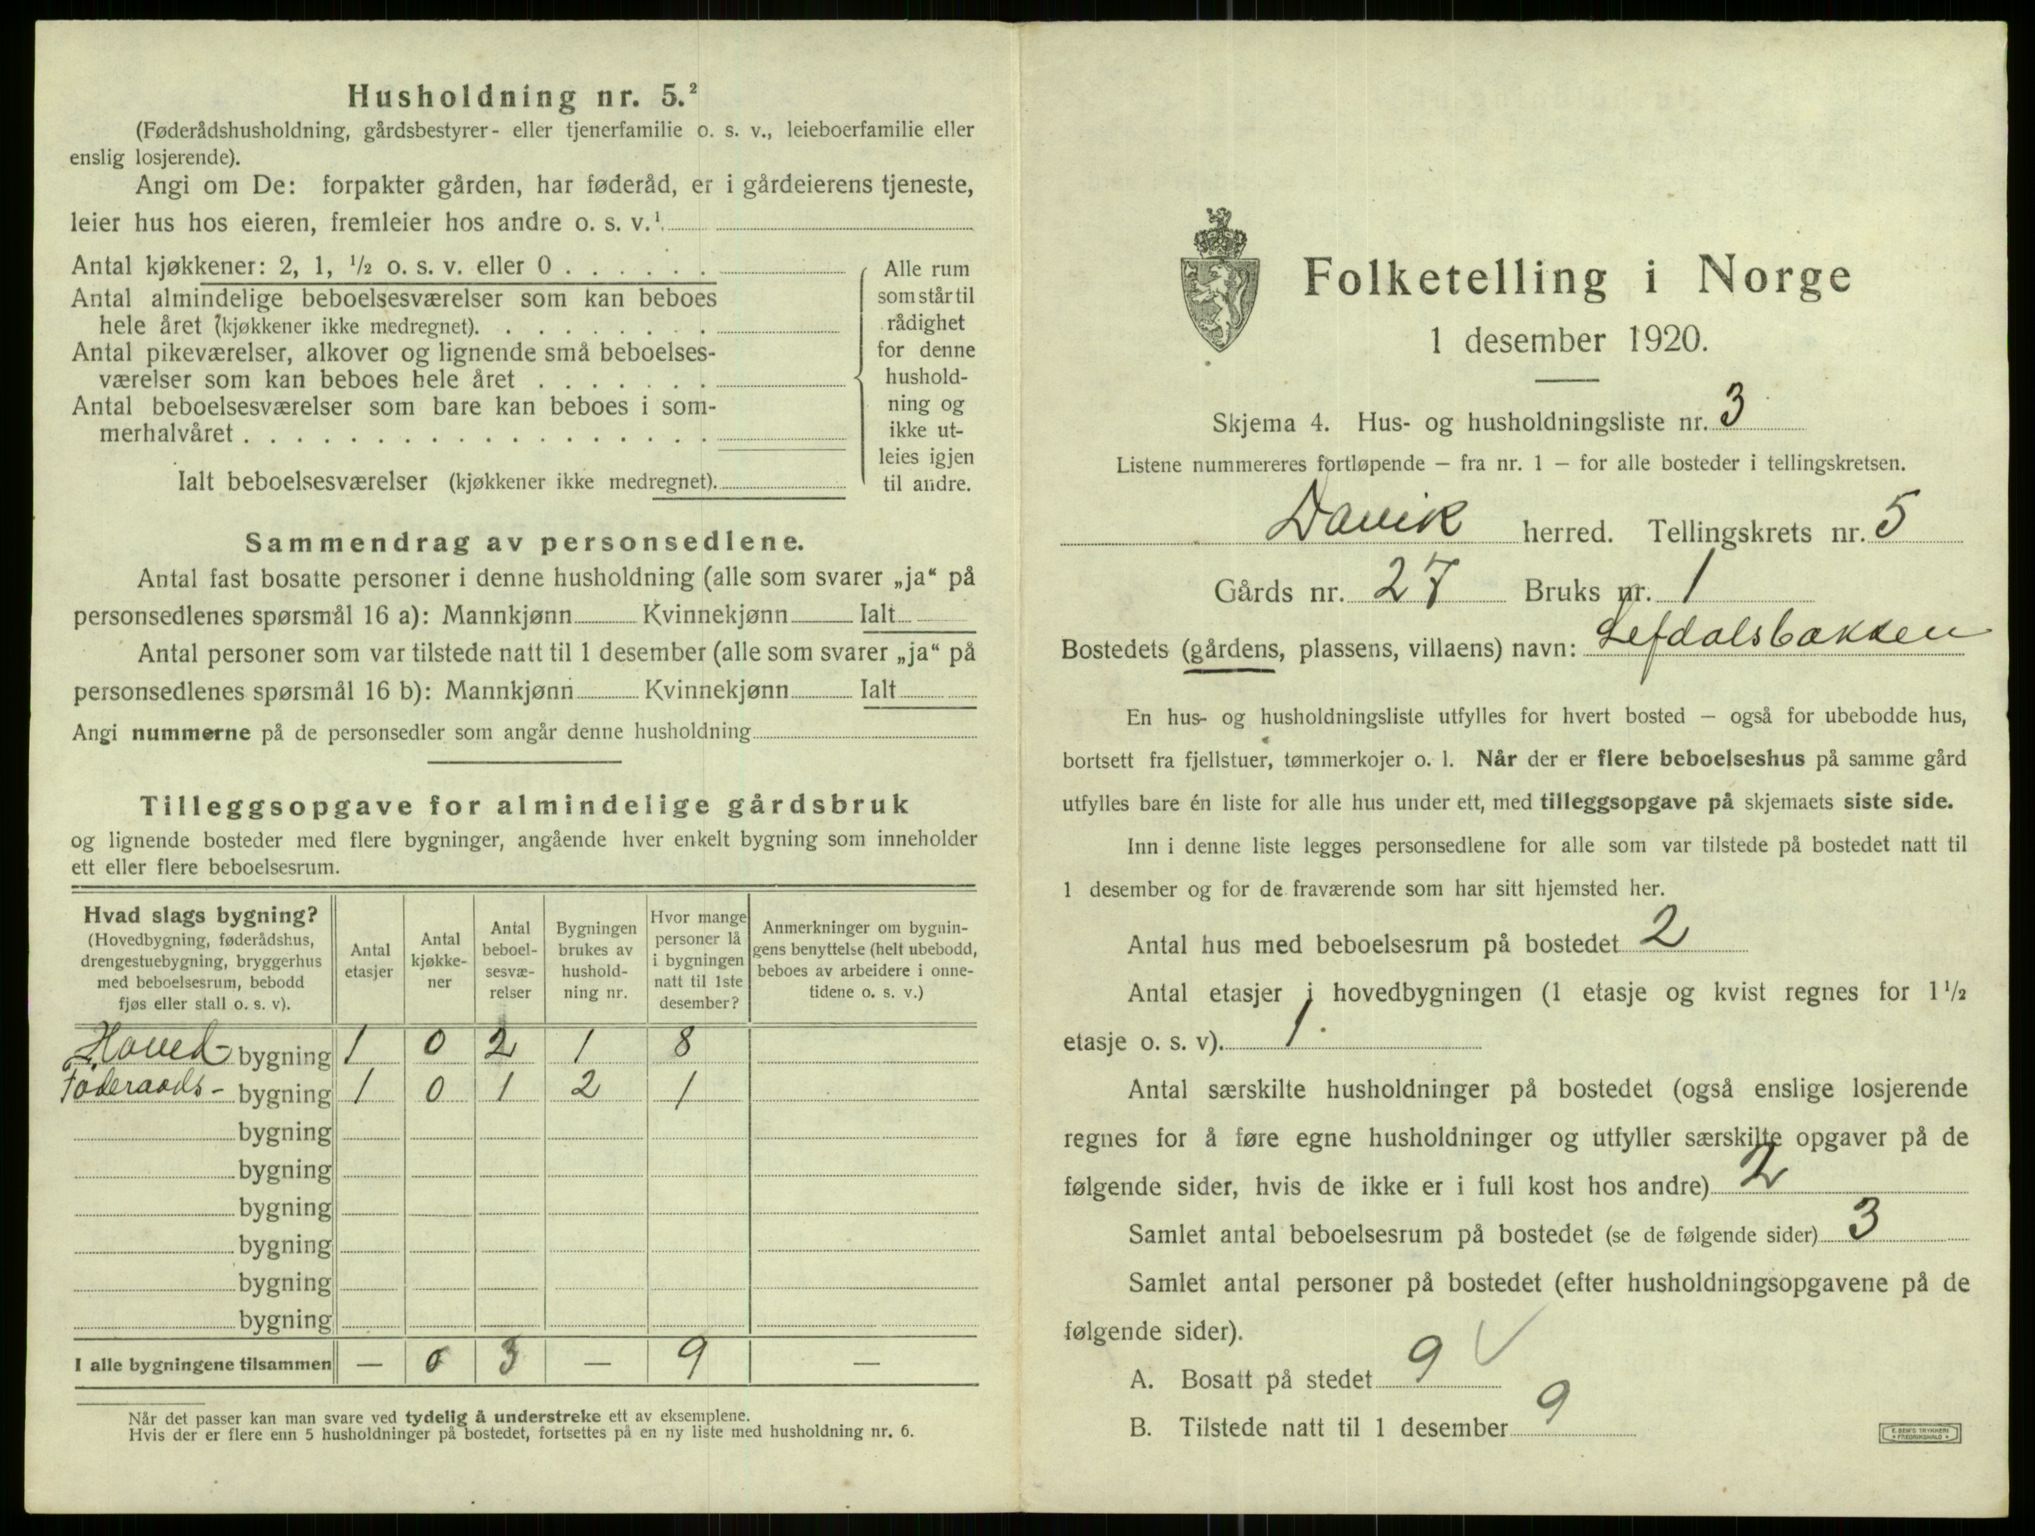 Husholdning nr. 5.²
(Føderådshusholdning, gårdsbestyrer- eller tjenerfamilie o. s. v., leieboerfamilie eller
enslig losjerende).
Angi om De: forpakter gården, har føderåd, er i gårdeierens tjeneste,
leier hus hos eieren, fremleier hos andre o. s. v.¹
Antal kjøkkener: 2, 1, ½ o. s. v. eller 0 . . . . . .
Antal almindelige beboelsesværelser som kan beboes
hele året (kjøkkener ikke medregnet). . . . . . . . .
Antal pikeværelser, alkover og lignende små beboelses-
værelser som kan beboes hele året . . . . . . .
Antal beboelsesværelser som bare kan beboes i som-
merhalvåret . . . . . . . . . . . . . . . . . .
Ialt beboelsesværelser (kjøkkener ikke medregnet).
Alle rum
som står til
rådighet
for denne
hushold-
ning og
ikke ut-
leies igjen
til andre.
Sammendrag av personsedlene.
Antal fast bosatte personer i denne husholdning (alle som svarer „ja“ på
personsedlenes spørsmål 16 a): Mannkjønn Kvinnekjønn Ialt
Antal personer som var tilstede natt til 1 desember (alle som svarer „ja“ på
personsedlenes spørsmål 16 b): Mannkjønn Kvinnekjønn Ialt
Angi nummerne på de personsedler som angår denne husholdning
Tilleggsopgave for almindelige gårdsbruk
og lignende bosteder med flere bygninger, angående hver enkelt bygning som inneholder
ett eller flere beboelsesrum.
Hvad slags bygning?
(Hovedbygning, føderådshus,
drengestuebygning, bryggerhus
med beboelsesrum, bebodd
fjøs eller stall o. s. v).
Antal
etasjer
Antal
kjøkke-
ner
Antal
beboel-
sesvæ-
relser
Bygningen
brukes av
hushold-
ning nr.
Hvor mange
personer lå
i bygningen
natt til 1ste
desember?
Anmerkninger om bygnin-
gens benyttelse (helt ubebodd,
beboes av arbeidere i onne-
tidene o. s. v.)
Hoved- bygning 1 0 2 1 8
Føderaads- bygning 1 0 1 2 1
bygning
bygning
bygning
bygning
bygning
bygning
I alle bygningene tilsammen — 0 3 — 9 —
Når det passer kan man svare ved tydelig å understreke ett av eksemplene.
Hvis der er flere enn 5 husholdninger på bostedet, fortsettes på en ny liste med husholdning nr. 6.
Folketelling i Norge
1 desember 1920.
Skjema 4. Hus- og husholdningsliste nr. 3
Listene nummereres fortløpende – fra nr. 1 – for alle bosteder i tellingskretsen.
Davik herred. Tellingskrets nr. 5
Gårds nr. 27 Bruks nr. 1
Bostedets (gårdens, plassens, villaens) navn: Lefdalsbakken
En hus- og husholdningsliste utfylles for hvert bosted – også for ubebodde hus,
bortsett fra fjellstuer, tømmerkojer o. l. Når der er flere beboelseshus på samme gård
utfylles bare én liste for alle hus under ett, med tilleggsopgave på skjemaets siste side.
Inn i denne liste legges personsedlene for alle som var tilstede på bostedet natt til
1 desember og for de fraværende som har sitt hjemsted her.
Antal hus med beboelsesrum på bostedet 2
Antal etasjer i hovedbygningen (1 etasje og kvist regnes for 1½
etasje o. s. v). 1.
Antal særskilte husholdninger på bostedet (også enslige losjerende
regnes for å føre egne husholdninger og utfyller særskilte opgaver på de
følgende sider, hvis de ikke er i full kost hos andre) 2
Samlet antal beboelsesrum på bostedet (se de følgende sider) 3
Samlet antal personer på bostedet (efter husholdningsopgavene på de
følgende sider).
A. Bosatt på stedet 9 ✓
B. Tilstede natt til 1 desember 9
E. SEM'S TRYKKERI
FREDRIKSHALD